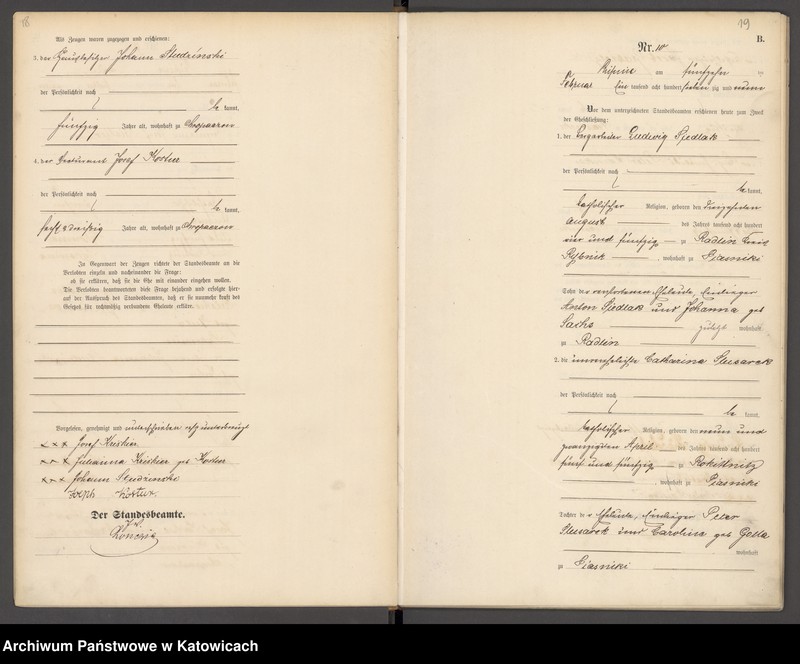 18
Als Zeugen waren zugezogen und erschienen:
3. der Hausbesitzer Johann Studzinski
der Persönlichkeit nach
be kannt,
fünfzig Jahre alt, wohnhaft zu
4. der Josef Kortus
der Persönlichkeit nach
be kannt,
sechsunddreißig Jahre alt, wohnhaft zu
In Gegenwart der Zeugen richtete der Standesbeamte an die
Verlobten einzeln und nacheinander die Frage:
ob sie erklären, daß sie die Ehe mit einander eingehen wollen.
Die Verlobten beantworteten diese Frage bejahend und erfolgte hier-
auf der Ausspruch des Standesbeamten, daß er sie nunmehr kraft des
Gesetzes für rechtmäßig verbundene Eheleute erkläre.
Vorgelesen, genehmigt und unterschrieben resp unterkreuzt
xxx Josef
xxx Julianna geb Kortus
xxx Johann Studzinski
Joseph Kortus.
Der Standesbeamte.
19
B.
Nr. 10
Lipine am fünfzehn ten
Februar Ein tausend acht hundert sieben zig und neun
Vor dem unterzeichneten Standesbeamten erschienen heute zum Zweck
der Eheschließung:
1. der Bergarbeiter Ludwig Siedlak
der Persönlichkeit nach
be kannt,
katholischer Religion, geboren den
August des Jahres tausend acht hundert
vier und fünfzig zu Radlin Kreis
Rybnik , wohnhaft zu Piasniki
Sohn der verstorbenen Eheleute, Einlieger
Anton Siedlak und Johanna geb
Sachs zuletzt wohnhaft
zu Radlin
2. die unverehelichte Catharina Slusarek
der Persönlichkeit nach
be kannt,
katholischer Religion, geboren den neun und
zwanzigsten April des Jahres tausend acht hundert
fünf und fünfzig zu Rokittnitz
, wohnhaft zu Piasniki
Tochter der Eheleute, Einlieger Peter
Slusarek und Carolina geb Golla
wohnhaft
zu Piasniki
Archiwum Państwowe w Katowicach